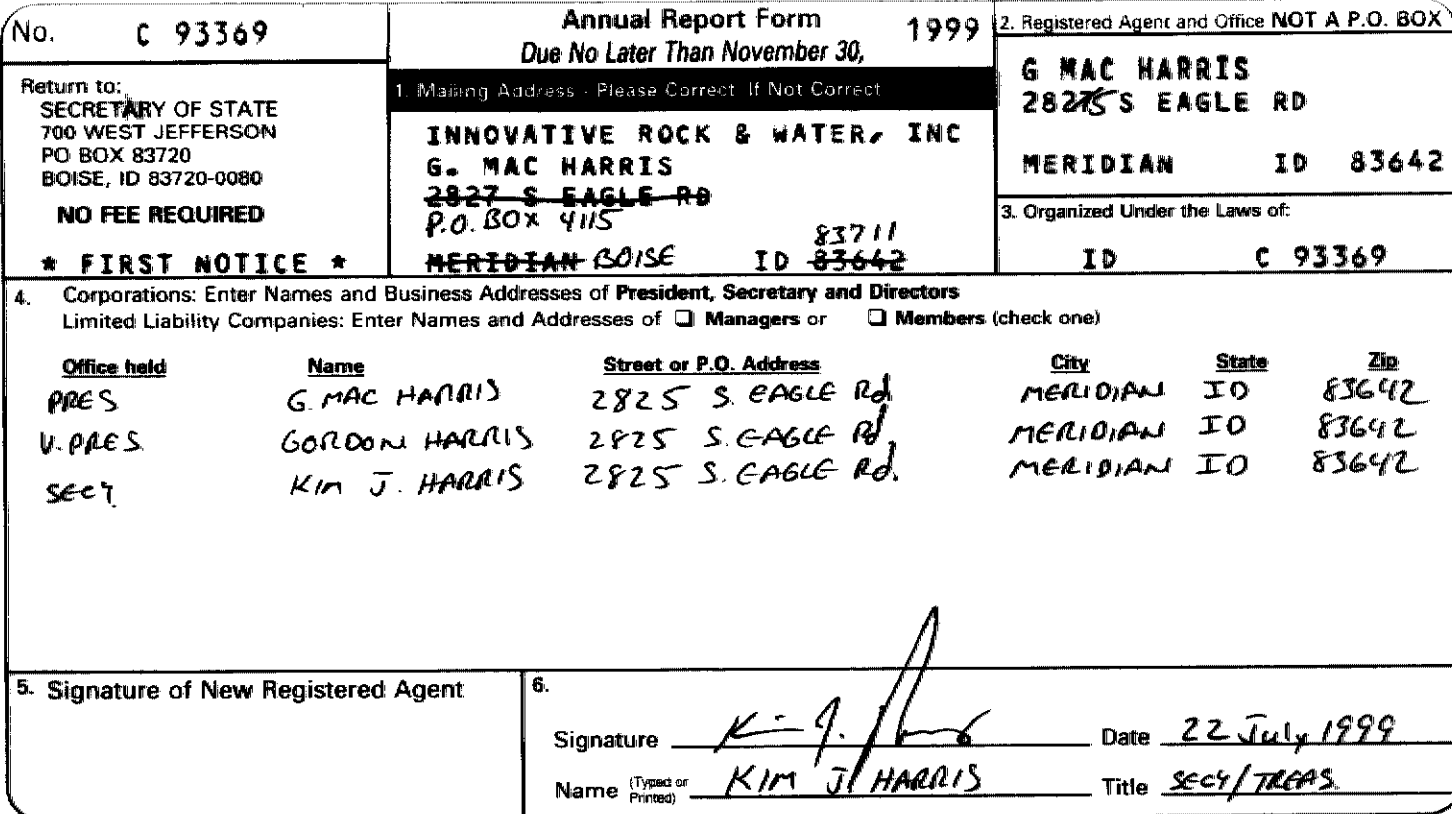 No. C 93369
Annual Report Form 1999
Due No Later Than November 30,
Return to:
SECRETARY OF STATE
700 WEST JEFFERSON
PO BOX 83720
BOISE, ID 83720-0080
NO FEE REQUIRED
* FIRST NOTICE *
1. Mailing Address - Please Correct If Not Correct
INNOVATIVE ROCK & WATER, INC
G. MAC HARRIS
2827 S EAGLE RD
P.O. BOX 4115
83711
MERIDIAN BOISE ID 83642
2. Registered Agent and Office NOT A P.O. BOX
G MAC HARRIS
2825 S EAGLE RD
MERIDIAN ID 83642
3. Organized Under the Laws of:
ID C 93369
4. Corporations: Enter Names and Business Addresses of President, Secretary and Directors
Limited Liability Companies: Enter Names and Addresses of ☐ Managers or ☐ Members (check one)
Office held Name Street or P.O. Address City State Zip
PRES G. MAC HARRIS 2825 S. EAGLE Rd. MERIDIAN ID 83642
V. PRES GORDON HARRIS 2825 S. EAGLE Rd. MERIDIAN ID 83642
SECY KIM J. HARRIS 2825 S. EAGLE Rd. MERIDIAN ID 83642
5. Signature of New Registered Agent
6.
Signature Kim J. Harris Date 22 July 1999
Name (Typed or Printed) KIM J HARRIS Title SECY/TREAS.